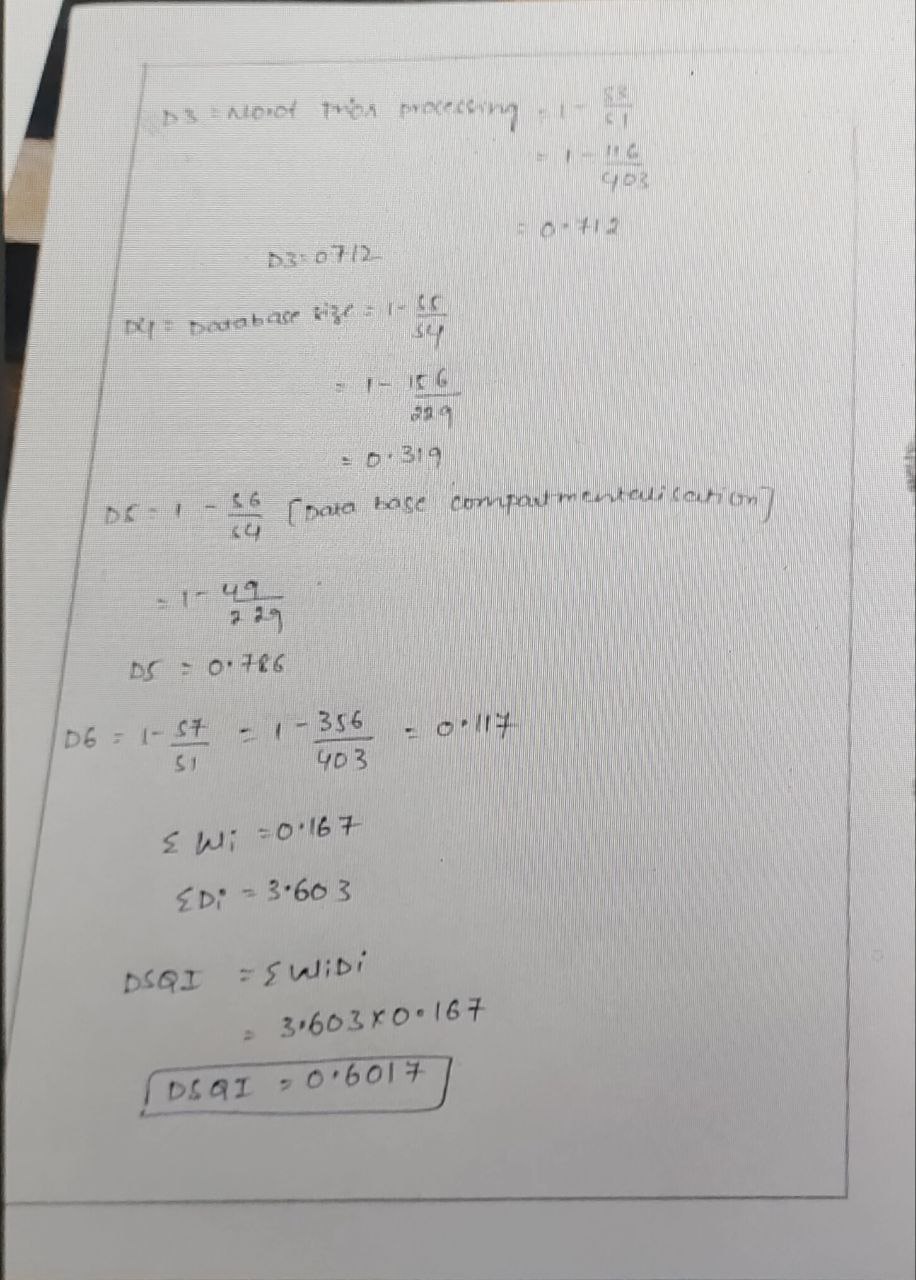 D3 = No.of prior processing = 1 - S3/S1
= 1 - 116/403
= 0.712
D3 = 0712
D4 = Database size = 1 - S5/S4
= 1 - 156/229
= 0.319
D5 = 1 - S6/S4 [Data base compartmentalisation]
= 1 - 49/229
D5 = 0.786
D6 = 1 - S7/S1 = 1 - 356/403 = 0.117
Σ Wi = 0.167
ΣDi = 3.603
DSQI = Σ WiDi
= 3.603 x 0.167
DSQI = 0.6017